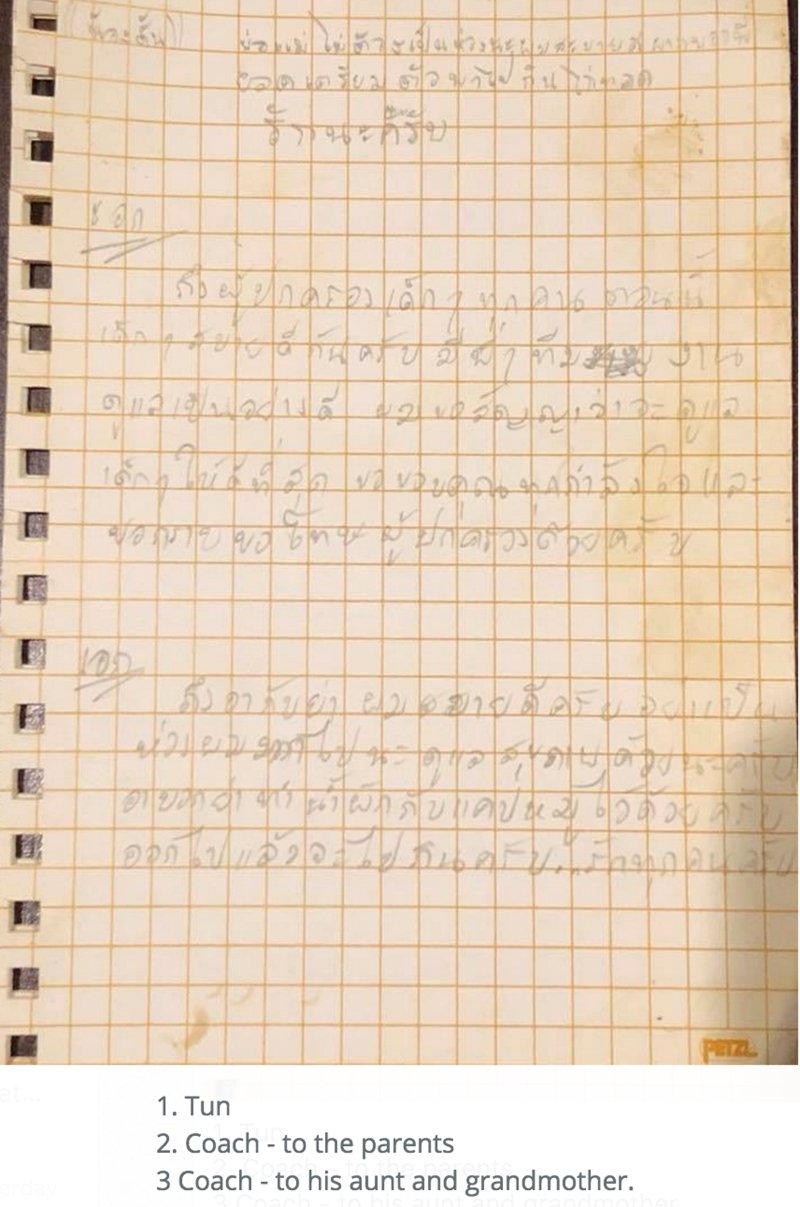 (น้องตั้น) พ่อแม่ ไม่ต้องเป็นห่วงนะผมสบายดี
ยอดเตรียมตัวพาไปกินไก่ทอด
ด้วยนะครับ
เอก
ถึงผู้ปกครองเด็กๆ ทุกคน ตอนนี้
เด็กๆ สบายดีกันครับ มีพี่ๆ ทีม งาน
ดูแลเป็นอย่างดี ผมขอสัญญาว่าจะดูแล
เด็กๆ ให้ดีที่สุด ขอขอบคุณทุกกำลังใจและ
ขอกราบขอโทษผู้ปกครองด้วยครับ
เอก
ถึงอากับย่า ผมสบายดีครับ อย่าเป็น
ห่วงผม ไปนะ ดูแลสุขภาพด้วยนะครับ
อาบอกย่าทำน้ำผักกับแคปหมูไว้ด้วยครับ
ออกไปแล้วจะไปกินครับ...รักทุกคนครับ
PETZL
1. Tun
2. Coach - to the parents
3 Coach - to his aunt and grandmother.